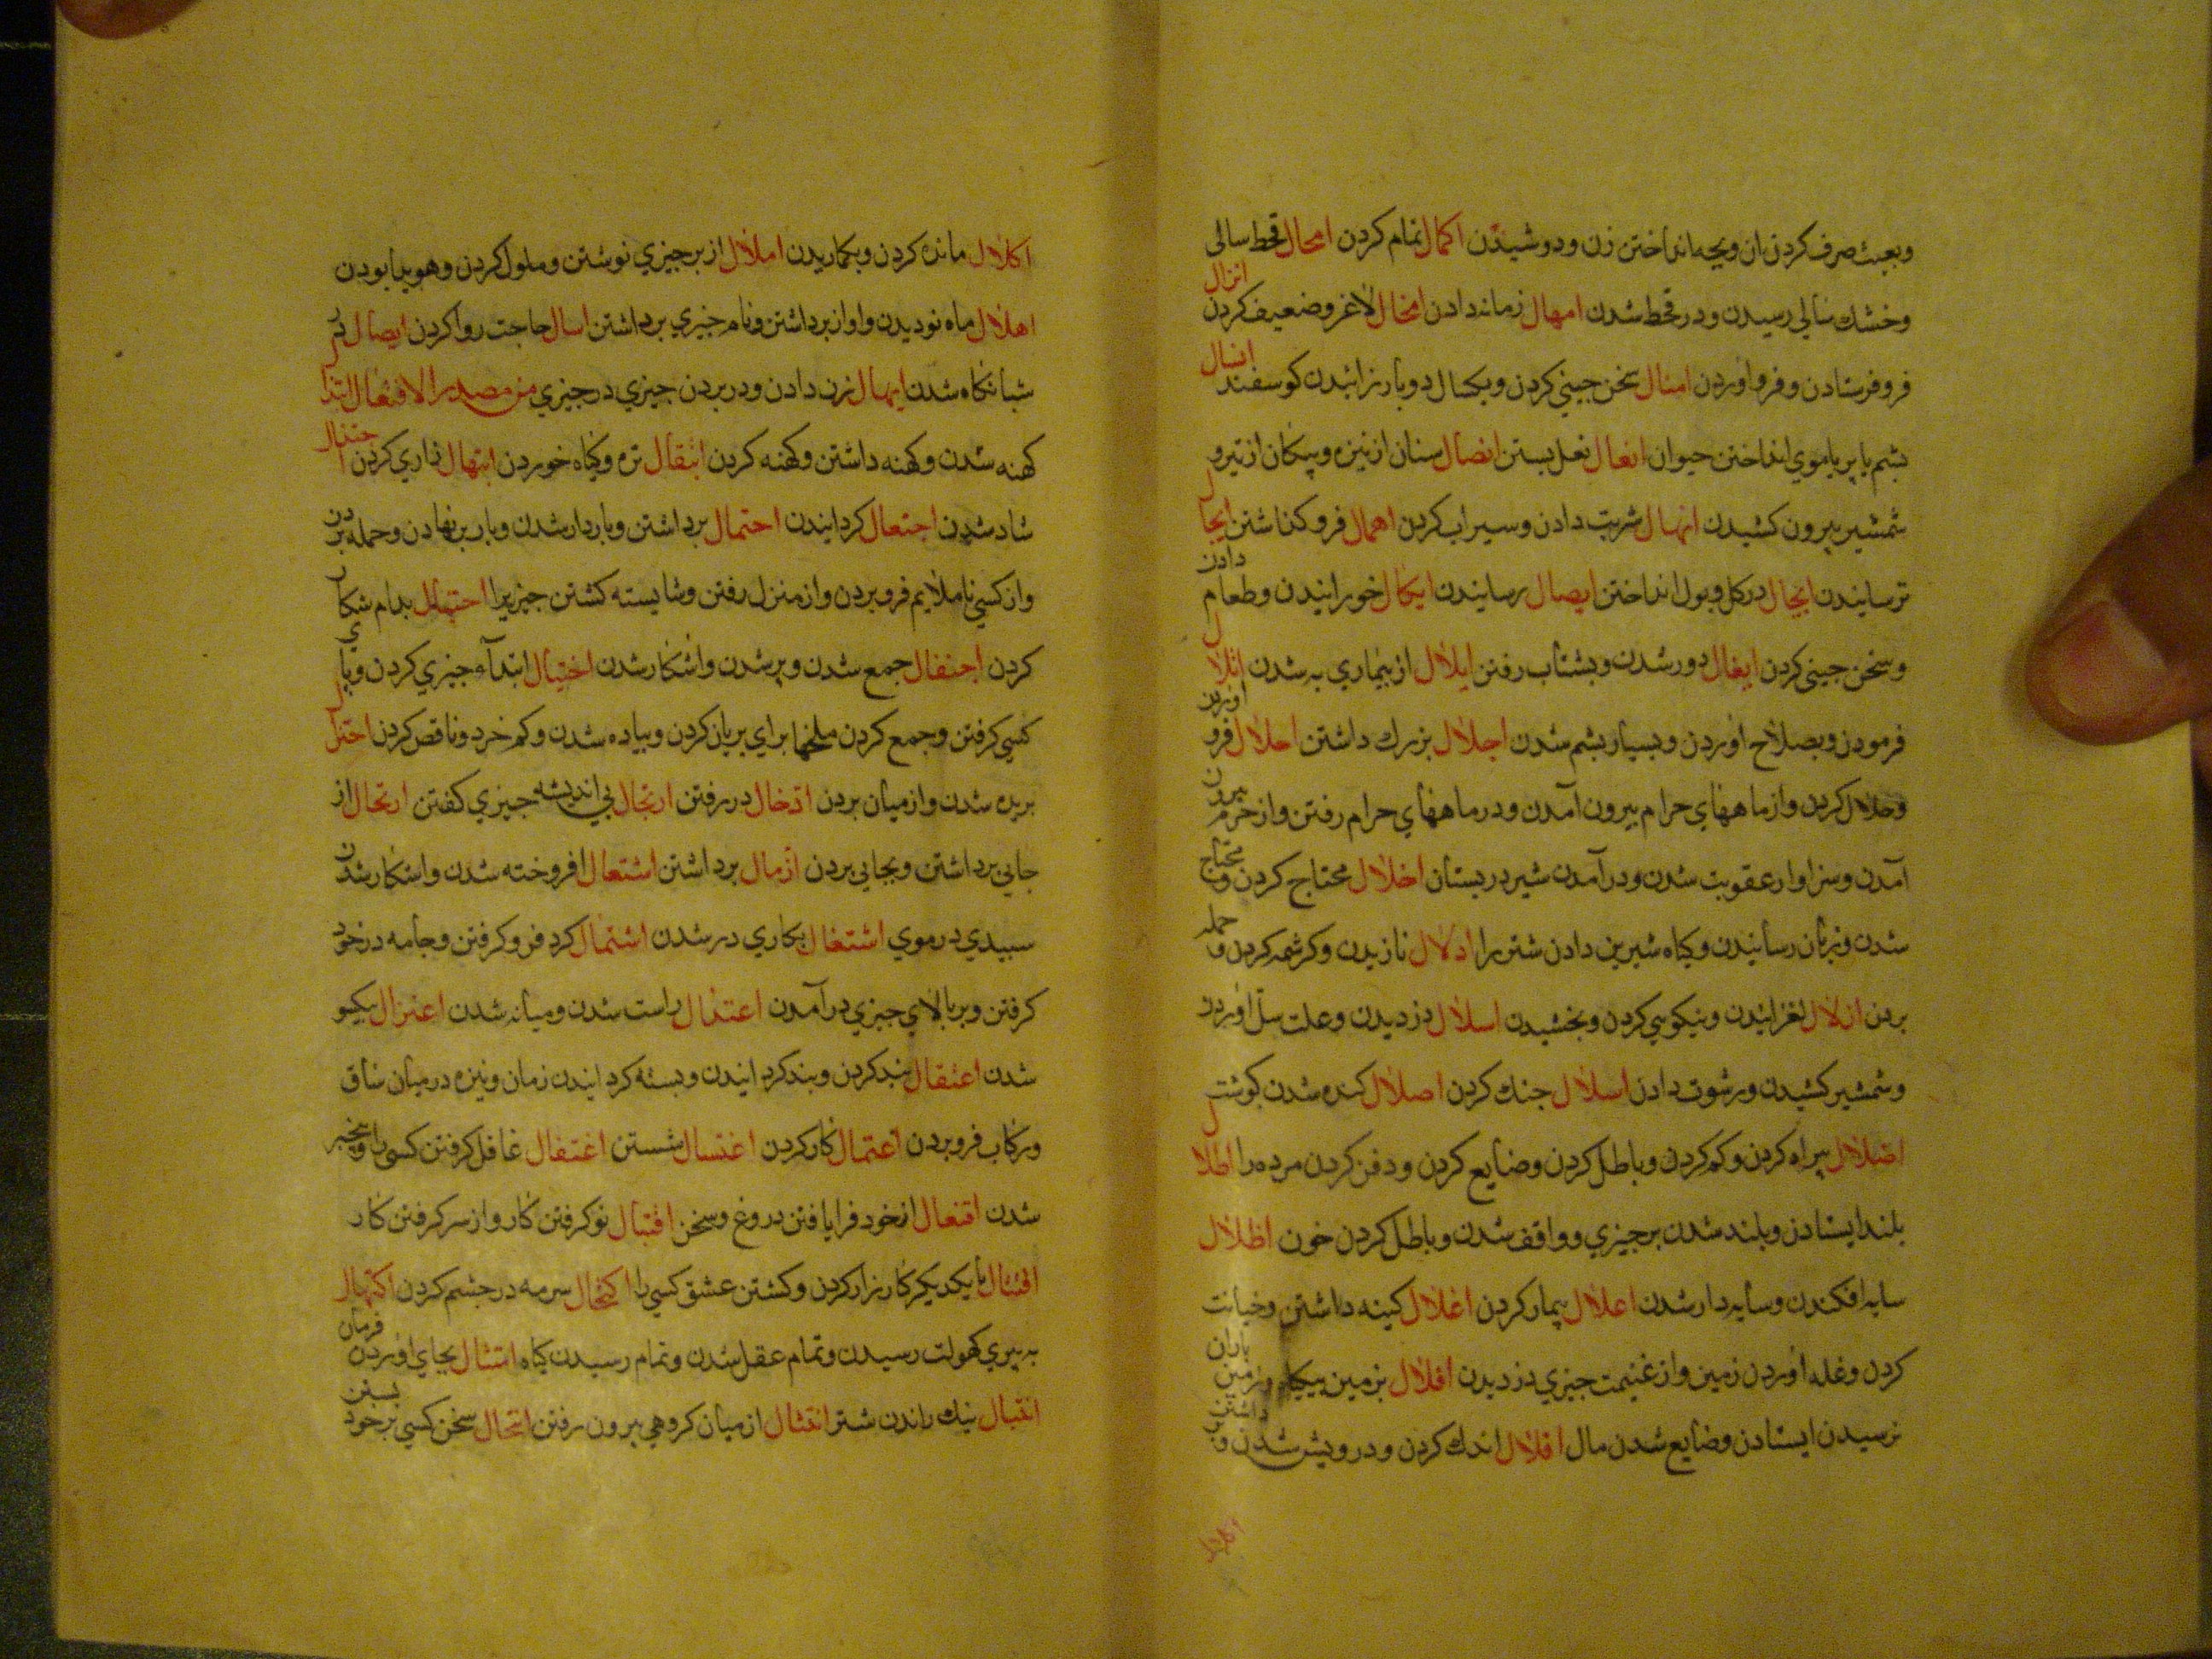 وبعبث صرف کردن نان وبچه انداختن زن ودوشیدن اکمال تمام کردن امحال قحط سالی
وخشك سالی رسیدن ودر قحط شدن امهال زمانه دادن انحال لاغر وضعیف کردن انزال
فرو فرستادن وفرو اوردن امثال سخن جینی کردن وبکسال دوبار زائیدن کوسفند انسال
بشم یا پر یا موی انداختن حیوان انعال نعل بستن انصال سنان از نیزه وپیکان از تیر و
شمشیر بیرون کشیدن انهال شربت دادن وسیراب کردن اهمال فرو کذاشتن ایجال
ترسانیدن ایحال در کل وبول انداختن ایصال رسانیدن ایکال خورانیدن وطعام دادن
وسخن جینی کردن ایغال دور شدن وبشتاب رفتن ابلال از بیماری به شدن اتلال
فرمودن وبصلاح اوردن وبسیار بشم شدن اجلال بزرك داشتن احلال فرو اوردن
وحلال کردن واز ماههای حرام بیرون آمدن ودر ماههای حرام رفتن واز حرم بیرون
آمدن وسزاوار عقوبت شدن ودر آمدن شیر در بستان اخلال محتاج کردن ومحتاج
شدن وزیان رسانیدن وکیاه شیرین دادن شتر را ادلال نازیدن وکرشمه کردن و حمله
بردن ازلال لغزانیدن ونیکویی کردن وبخشیدن اسلال دزدیدن وعلت سل اوردن
وشمشیر کشیدن ورشوت دادن اسلال جنك کردن اصلال کنده شدن کوشت
اضلال بیراه کردن وکم کردن وباطل کردن وضایع کردن ودفن کردن مرده را اطلال
بلند ایستادن وبلند شدن بر جیزی وواقف شدن وباطل کردن خون اظلال
سایه افکندن وسایه دار شدن اعلال بیمار کردن اغلال کینه داشتن وخیانت
کردن وغله اوردن زمین واز غنیمت جیزی دزدیدن افلال بزمین بیکیاه وزمین باران
نرسیدن ایستادن وضایع شدن مال اقلال اندك کردن ودرویش شدن وبر داشتن
اکلال مانده کردن وبکماریدن املال از بر جیزی نوشتن وملول کردن وهویدا بودن
اهلال ماه نو دیدن واواز برداشتن ونام جیزی برداشتن اسال حاجت روا کردن ایصال در
شبانکاه شدن ایهال زن دادن ودر بردن جیزی در جیزی من مصدر الافتعال ابتذال
کهنه شدن وکهنه داشتن وکهنه کردن ابتقال تره وکیاه خوردن ابتهال زاری کردن اجتذال
شاد شدن اجتعال کردانیدن احتمال برداشتن وباردار شدن وبار بر نهادن وحمله بردن
واز کسی ناملایم فرو بردن واز منزل رفتن وشایسته کشتن جیزیرا احتبال بدام شکار
کردن احتفال جمع شدن وپر شدن واشکار شدن اختیال ابتدآء جیزی کردن وپای
کسی کرفتن وجمع کردن ملخها برای بریان کردن وبیاده شدن وکم خرد وناقص کردن اختزال
بریده شدن واز میان بردن ادخال در رفتن ارتجال بی اندیشه جیزی کفتن ارتحال از
جایی برداشتن وبجایی بردن ازمال برداشتن اشتعال افروخته شدن واشکار شدن
سبیدی در موی اشتغال بکاری در شدن اشتمال کرد فرو کرفتن وجامه در خود
کرفتن وبر بالای جیزی در آمدن اعتدال راست شدن ومیانه شدن اعتزال بیکسو
شدن اعتقال بند کردن وبند کردانیدن وبسته کردانیدن زمان ونیزه در میان ساق
ورکاب فرو بردن اعتمال کار کردن اغتسال شستن اغتفال غافل کرفتن کسی را وبیخبر
شدن افتعال از خود فرا یافتن دروغ وسخن اقتبال نو کرفتن کار واز سر کرفتن کار
اقتتال با یکدیکر کارزار کردن وکشتن عشق کسی را اکتحال سرمه در جشم کردن اکتهال
به پیری کهولت رسیدن وتمام عقل شدن وتمام رسیدن کیاه امتثال بجای اوردن فرمان
انتبال نیك راندن شتر انتثال از میان کروهی بیرون رفتن انتحال سخن کسی بر خود بستن